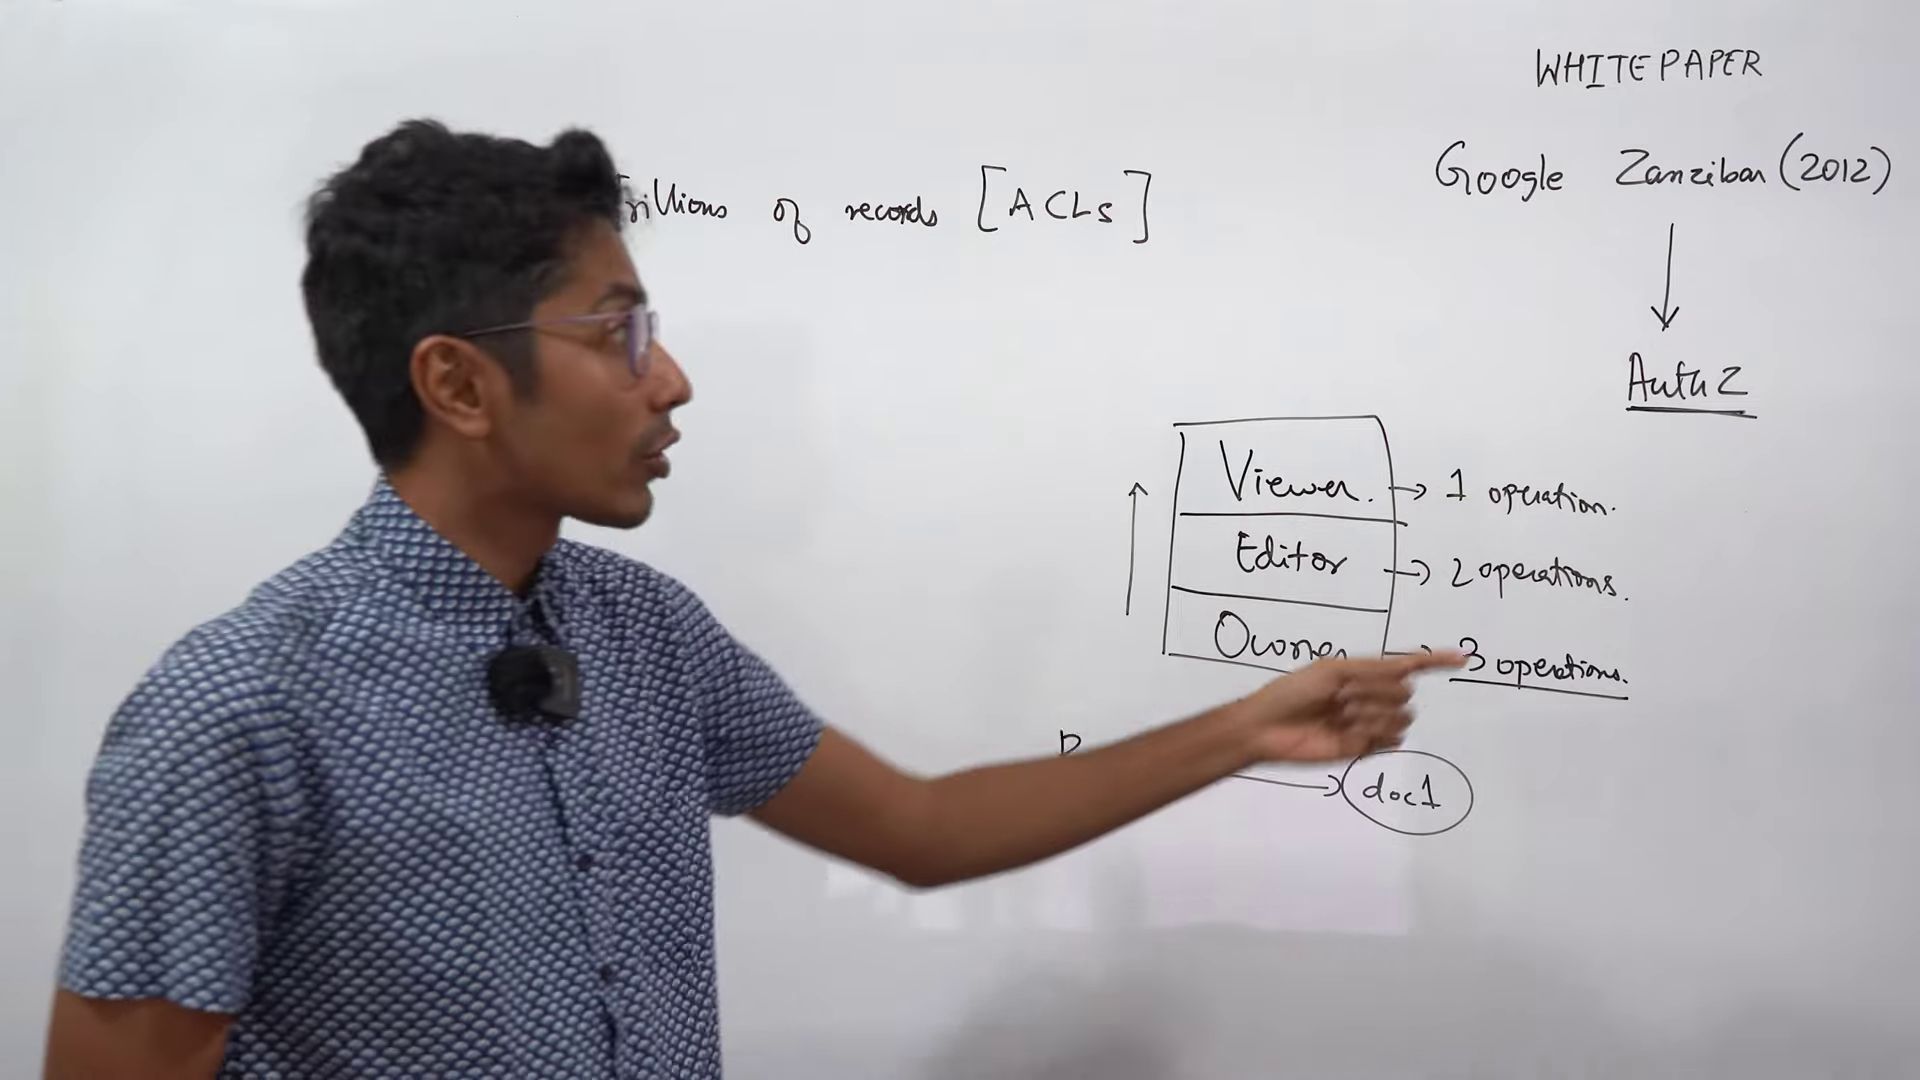 WHITEPAPER
Google Zanzibar (2012)
Trillions of records [ACLs]
AuthZ
Viewer. → 1 operation.
Editor → 2 operations.
Owner → 3 operations.
doc1